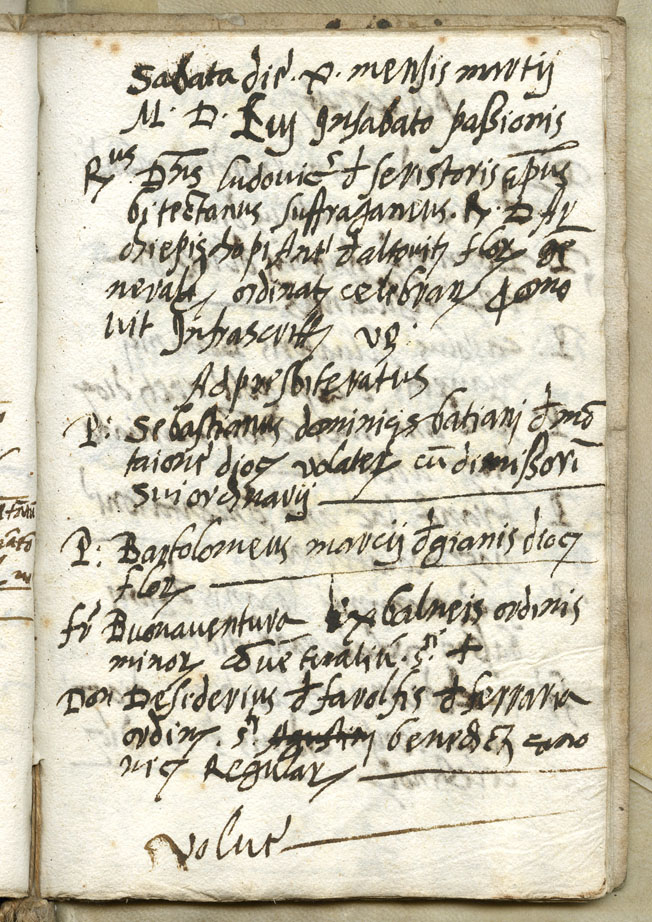 Sabata die. x. mensis martij
M. D. Lvij In sabato passionis
Rus Dns ludovics d seristoris epus
bitectanus suffraganeus. R. D Ar
chiepischopi Ant d altovit flor ge
neralr ordinat celebrar promo
vit Infrascritt vz:
Ad presbiteratus
P: Sebastianus dominicj batiani d mō
taione dioc volater cū dimissorī
Sui ordinarij
P: Bartolomeus marcij d gianis dioc
flor
fr Buonaventura ex balneis ordinis
minor cōventualiū. sti +
Don Desiderius d farolfis d ferraria
ordin. sti Agustini benedict cano
nic Regular
volve